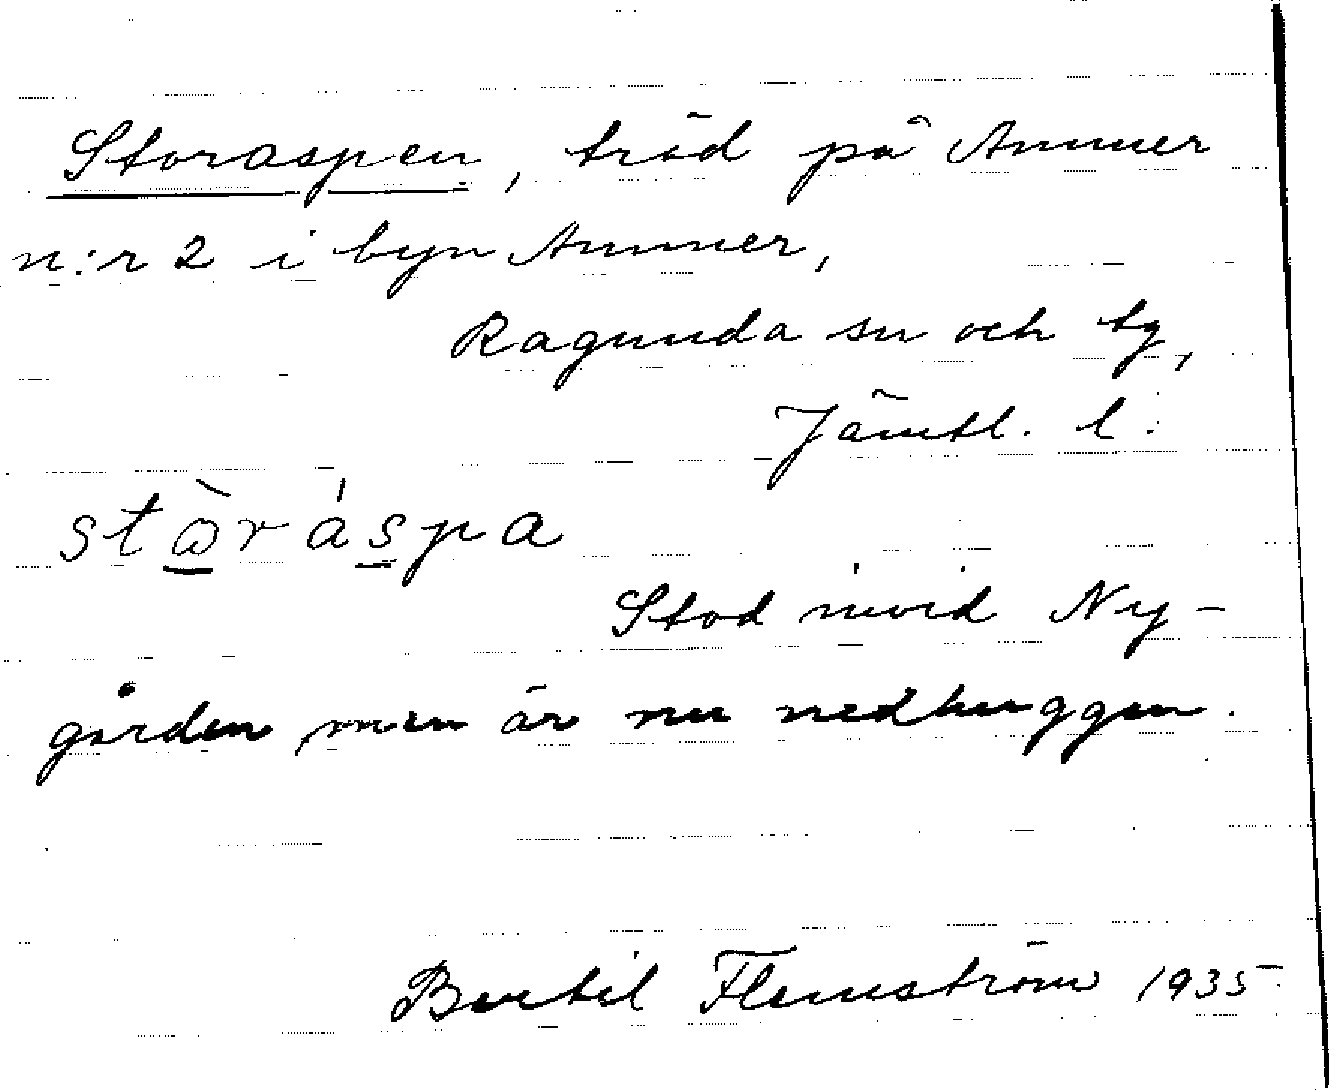 Storaspen, träd på Ammer
n:r 2 i byn Ammer,
Ragunda sn och tg,
Jämtl. l.
stὼráspa
Stod invid Ny-
gården men är nu nedhuggen.
Bertil Flemström 1935